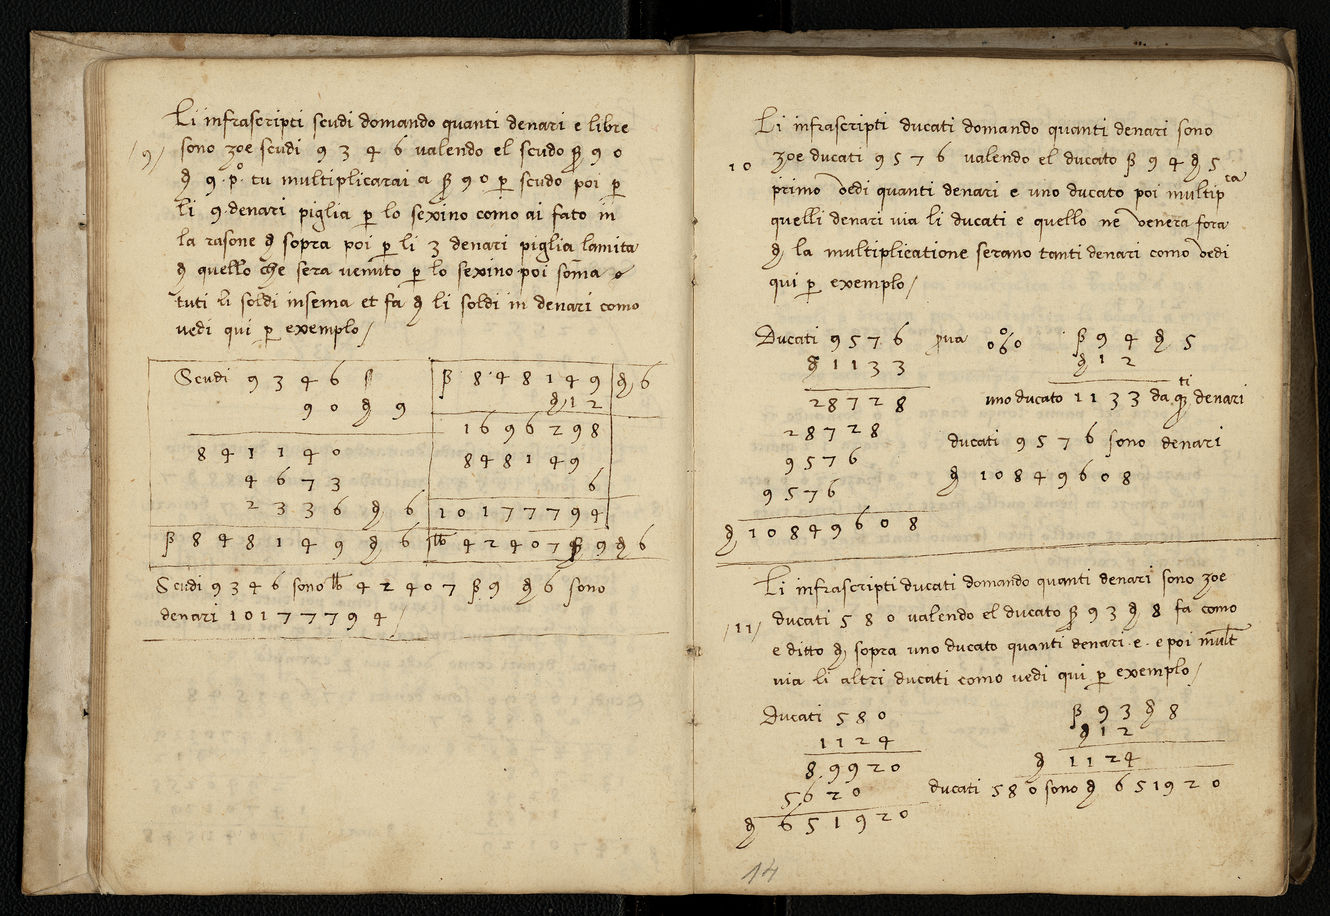 Li infrascripti scudi domando quanti denari e libre
/9/ sono zoe scudi 9 3 4 6 valendo el scudo ꝑ 9 0
₰ 9 · pº · tu multiplicarai a ꝑ 9 0 ꝑ scudo poi ꝑ
li 9 · denari piglia ꝑ lo sexino como ai fato in
la rasone ₰ sopra poi ꝑ li 3 denari piglia lamita
₰ quello che sera venuto ꝑ lo sexino poi soma
tuti li soldi insema et fa ₰ li soldi in denari como
vedi qui ꝑ exemplo /
Scudi 9 3 4 6 ß
9 0 ₰ 9
8 4 1 1 4 0
4 6 7 3
2 3 3 6 ₰ 6
ß 8 4 8 1 4 9 ₰ 6
ß 8 4 8 1 4 9 ₰ 6
₰ 1 2
1 6 9 6 2 9 8
8 4 8 1 4 9
6
1 0 1 7 7 7 9 4
lb 4 2 4 0 7 ß 9 ₰ 6
Scudi 9 3 4 6 sono lb 4 2 4 0 7 ß 9 ₰ 6 sono
denari 1 0 1 7 7 7 9 4 /
Li infrascripti ducati domando quanti denari sono
10 zoe ducati 9 5 7 6 valendo el ducato ß 9 4 ₰ 5
primo vedi quanti denari e uno ducato poi multipca
quelli denari via li ducati e quello ne venera fora
₰ la multiplicatione serano tanti denari como vedi
qui ꝑ exemplo /
Ducati 9 5 7 6 prova 0 0/6 0
₰ 1 1 3 3
2 8 7 2 8
2 8 7 2 8
9 5 7 6
9 5 7 6
₰ 1 0 8 4 9 6 0 8
ß 9 4 ₰ 5
₰ 1 2
uno ducato 1 1 3 3 da qti denari
ducati 9 5 7 6 sono denari
₰ 1 0 8 4 9 6 0 8
Li infrascripti ducati domando quanti denari sono zoe
/11/ ducati 5 8 0 valendo el ducato ß 9 3 ₰ 8 fa como
e ditto ₰ sopra uno ducato quanti denari · e · e poi mult
via li altri ducati como vedi qui ꝑ exemplo /
Ducati 5 8 0
1 1 2 4
8 · 9 9 2 0
5 6 2 0
₰ 6 5 1 9 2 0
ß 9 3 ₰ 8
₰ 1 2
₰ 1 1 2 4
ducati 5 8 0 sono ₰ 6 5 1 9 2 0
14